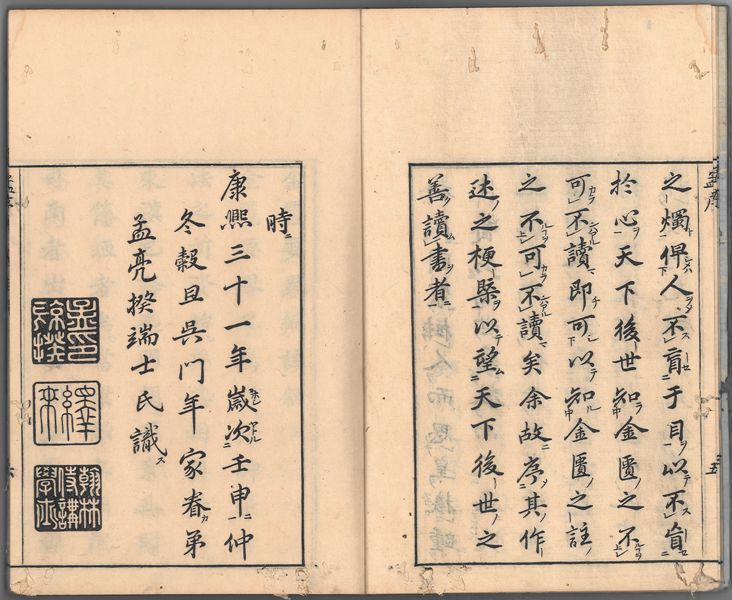 之燭俾人不盲于目以不盲
於心天下後世知金匱之不
可不讀即可以知金匱之註
之不可不讀矣余故序其作
述之梗槩以望天下後世之
善讀書者
時
康熈三十一年歲次壬申仲
冬穀旦吳門年家眷弟
孟亮揆端士氏識
孟亮揆印
繹來
翰林侍講學士